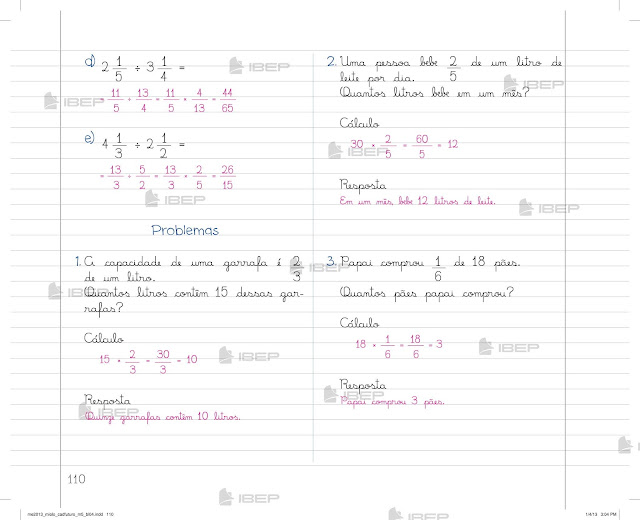 d) 2 1/5 ÷ 3 1/4 =
= 11/5 ÷ 13/4 = 11/5 × 4/13 = 44/65
e) 4 1/3 ÷ 2 1/2 =
= 13/3 ÷ 5/2 = 13/3 × 2/5 = 26/15
Problemas
1. A capacidade de uma garrafa é 2/3
de um litro.
Quantos litros contêm 15 dessas gar-
rafas?
Cálculo
15 × 2/3 = 30/3 = 10
Resposta
Quinze garrafas contêm 10 litros.
2. Uma pessoa bebe 2/5 de um litro de
leite por dia.
Quantos litros bebe em um mês?
Cálculo
30 × 2/5 = 60/5 = 12
Resposta
Em um mês, bebe 12 litros de leite.
3. Papai comprou 1/6 de 18 pães.
Quantos pães papai comprou?
Cálculo
18 × 1/6 = 18/6 = 3
Resposta
Papai comprou 3 pães.
110
IBEP
IBEP
IBEP
IBEP
IBEP
IBEP
IBEP
IBEP
IBEP
IBEP
IBEP
IBEP
IBEP